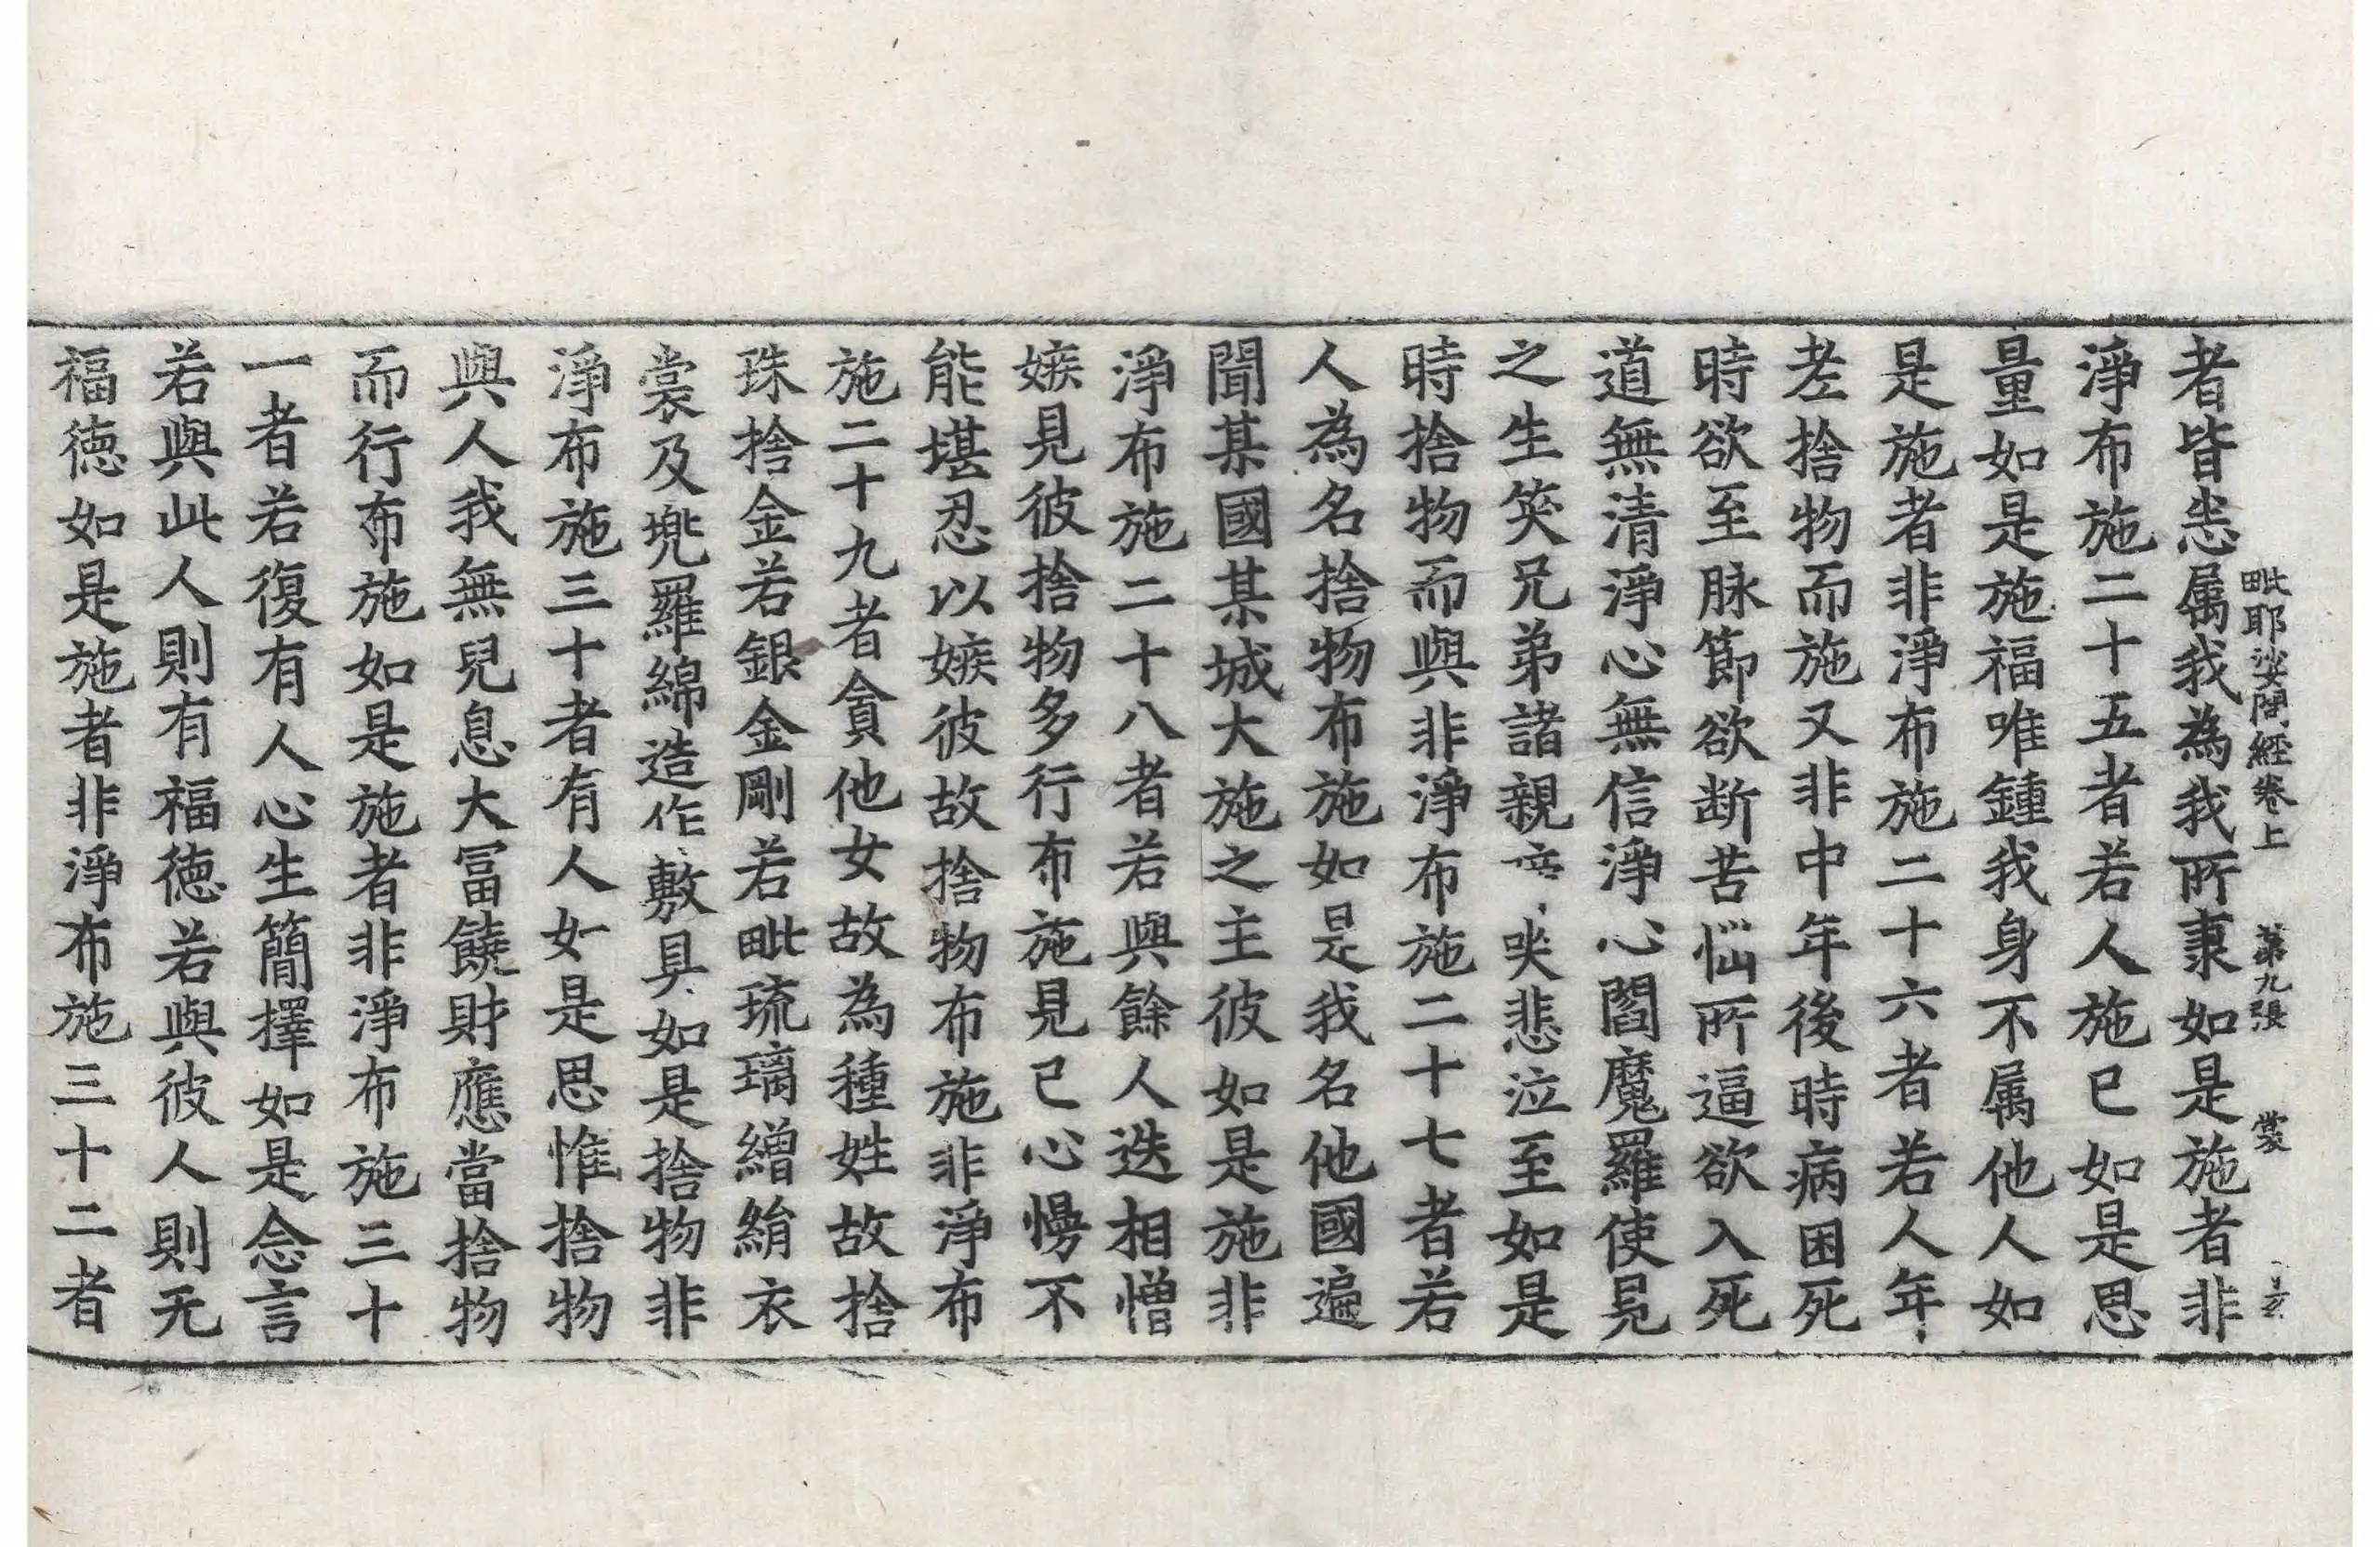 毗耶娑問經卷上 第九張 裳
者皆悉属我為我所隶如是施者非
淨布施二十五者若人施已如是思
量如是施福唯鍾我身不属他人如
是施者非淨布施二十六者若人年
老捨物而施又非中年後時病困死
時欲至脉節欲断苦惱所逼欲入死
道無清淨心無信淨心閻魔羅使見
之生笑兄弟諸親啼哭悲泣至如是
時捨物而與非淨布施二十七者若
人為名捨物布施如是我名他國遍
聞某國某城大施之主彼如是施非
淨布施二十八者若與餘人迭相憎
嫉見彼捨物多行布施見已心慢不
能堪忍以嫉彼故捨物布施非淨布
施二十九者貪他女故為種姓故捨
珠捨金若銀金剛若毗琉璃繒絹衣
裳及兠羅綿造作敷具如是捨物非
淨布施三十者有人如是思惟捨物
與人我無兒息大冨饒財應當捨物
而行布施如是施者非淨布施三十
一者若復有人心生簡擇如是念言
若與此人則有福徳若與彼人則无
福徳如是施者非淨布施三十二者